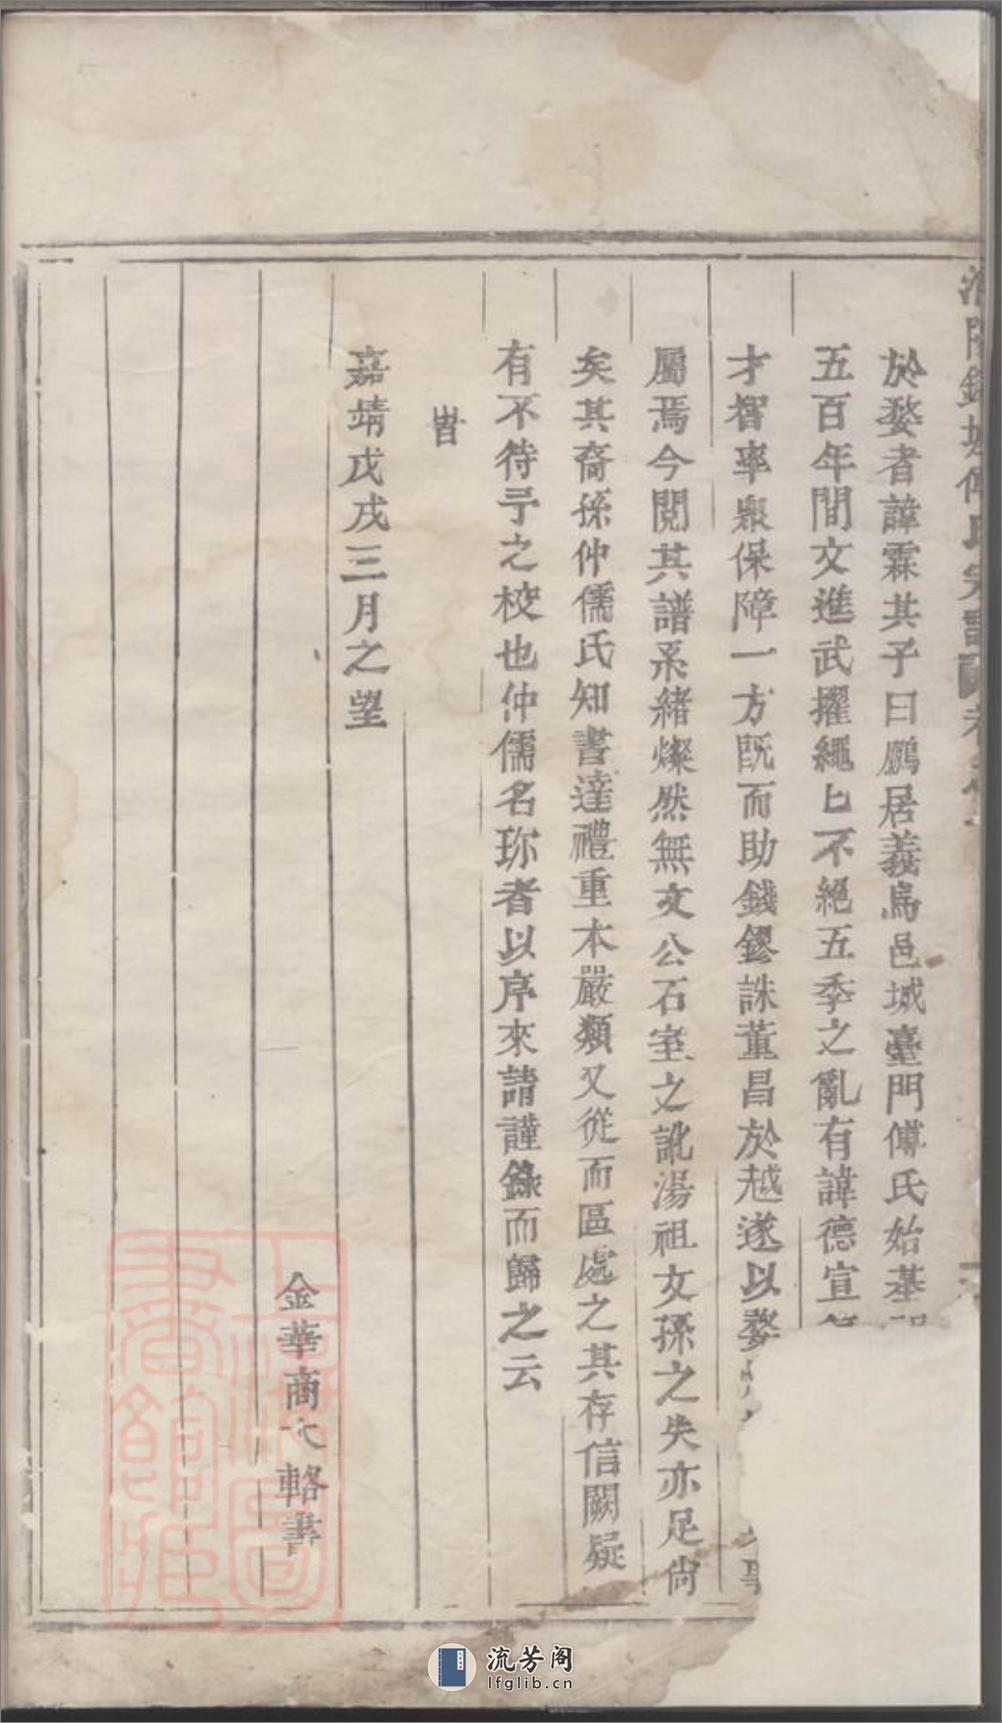 於婺者諱霖其子曰鵬居義烏邑城臺門傅氏始基
五百年間文進武擢繩匕不絕五季之亂有諱德宣
才智率衆保障一方既而助錢鏐誅董昌於越遂以婺
屬焉今閱其譜系緒燦然無文公石室之訛湯祖女孫之失亦足尙
矣其裔孫仲儒氏知書達禮重本嚴類又從而區處之其存信闕疑
有不待予之校也仲儒名珎者以序來請謹錄而歸之云
旹
嘉靖戊戌三月之望
金華商大輅書
上海圖書館藏
流芳阁
lfglib.cn